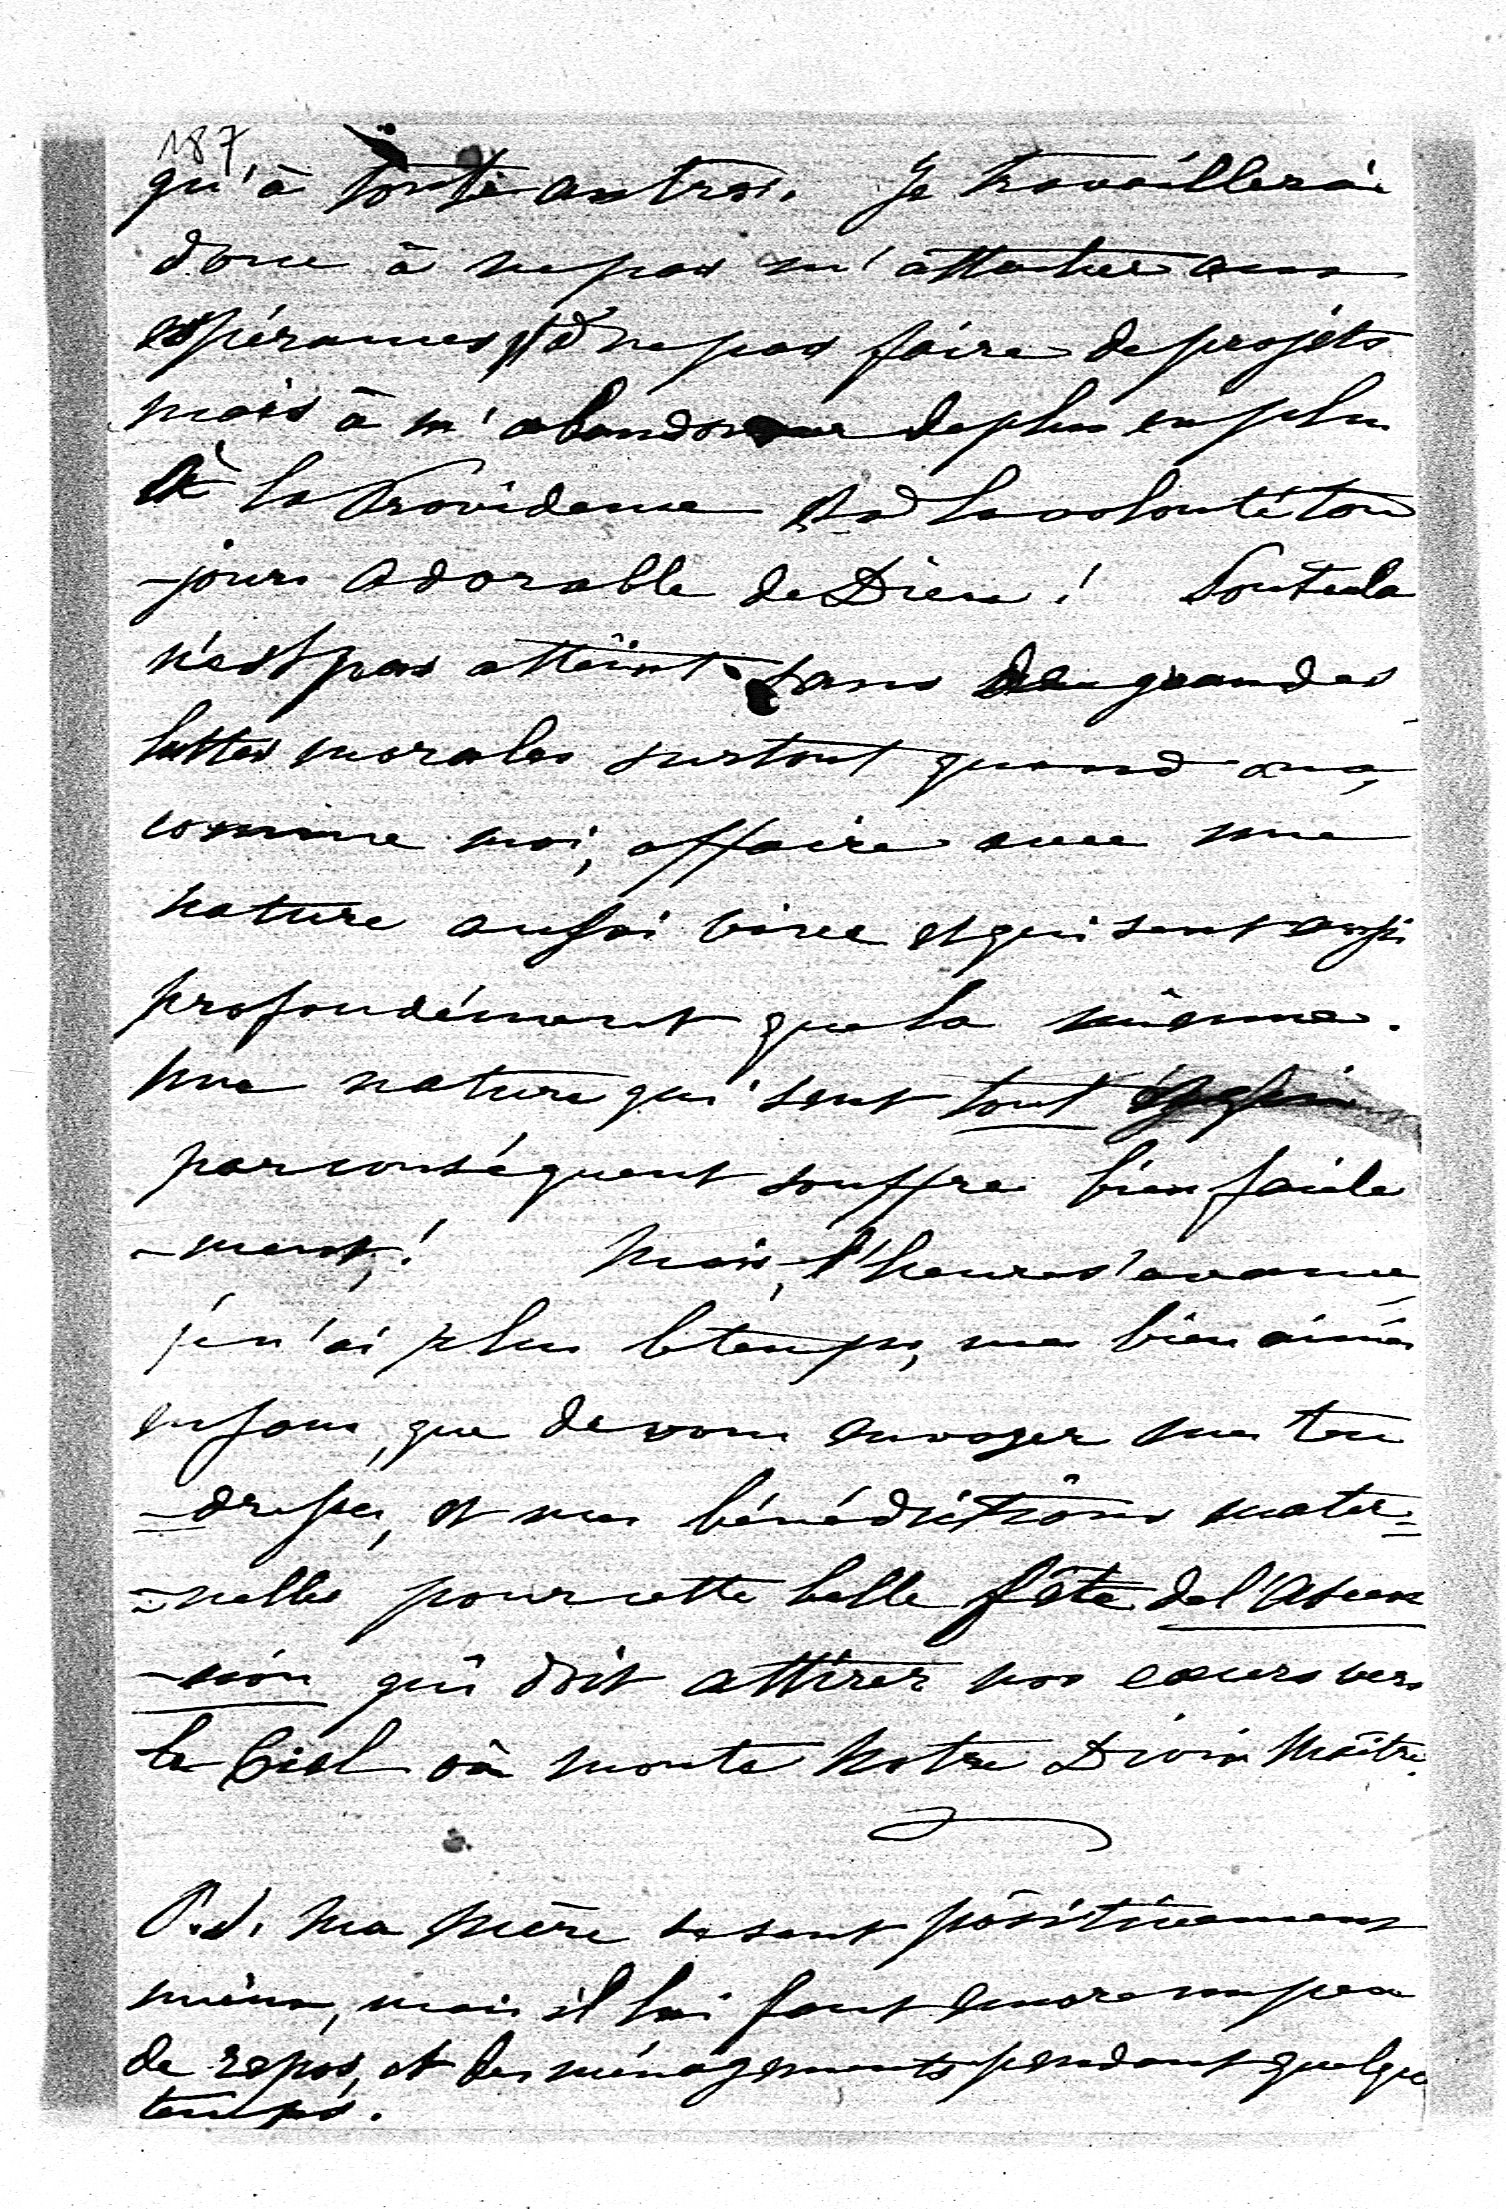 187
qu'à toute autre. Je travaillerai
donc à ne pas m'attacher aux
espérances, et à ne pas faire de projets
mais à m'abandonner de plus en plus
à la Providence et à la volonté tou
-jours adorable de Dieu ! Tout cela
n'est pas atteint sans de grandes
luttes morales surtout quand on a,
comme moi, affaire avec une
nature aussi vive et qui sent aussi
profondément que la mienne.
Une nature qui sent tout
par conséquent souffre bien facile
-ment,! Mais, l'heure s'avance,
je n'ai plus le temps, mes bien aimés
enfans, que de vous envoyer mes ten
-dresses, et mes bénédictions mater-
-nelles pour cette belle fête de l'Ascen
-sion qui doit attirer nos cœurs vers
le Ciel où monte Notre Divin Maître.
P.S. Ma Mère se sent positivement
mieux, mais il lui faut encore un peu
de repos, et des ménagements pendant quelque
temps.